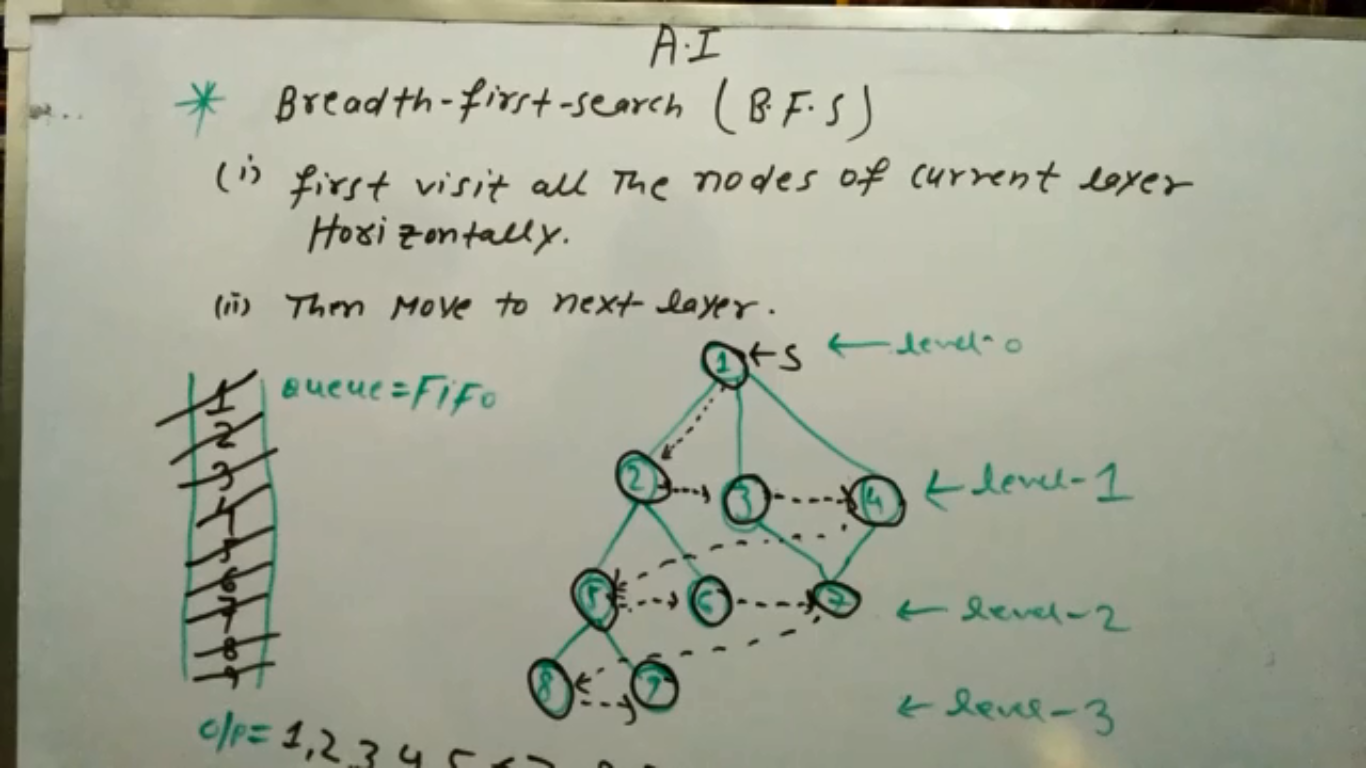 A.I
* Breadth-first-search (B.F.S)
(i) first visit all The nodes of current layer
Horizontally.
(ii) Then Move to next layer.
1 ← S ← level-0
Queue = FiFo
1
2
3
4
5
6
7
8
9
2 3 4 ← level-1
5 6 7 ← level-2
8 9 ← level-3
o/p = 1,2,3 4 5 6 7